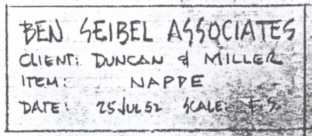 BEN SEIBEL ASSOCIATES
CLIENT: DUNCAN & MILLER
ITEM: NAPPE
DATE: 25 JUL 52 SCALE: F.S.